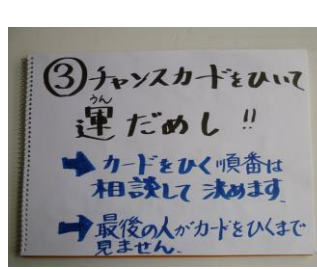 ③チャンスカードをひいて
運だめし!!
うん
➡カードをひく順番は
相談して決めます
➡最後の人がカードをひくまで
見ません.